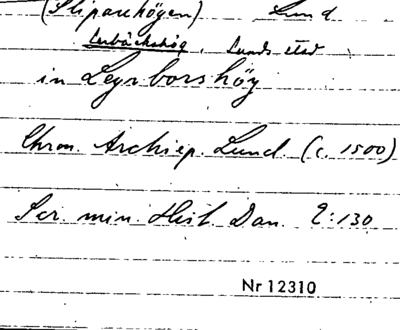 (Sliparehögen) Lund
Lerbäckshög, Lunds stad
in Leyrborshöy
Chron. Archiep. Lund. (c. 1500)
Scr. min. Hist. Dan. 2:130
Nr 12310